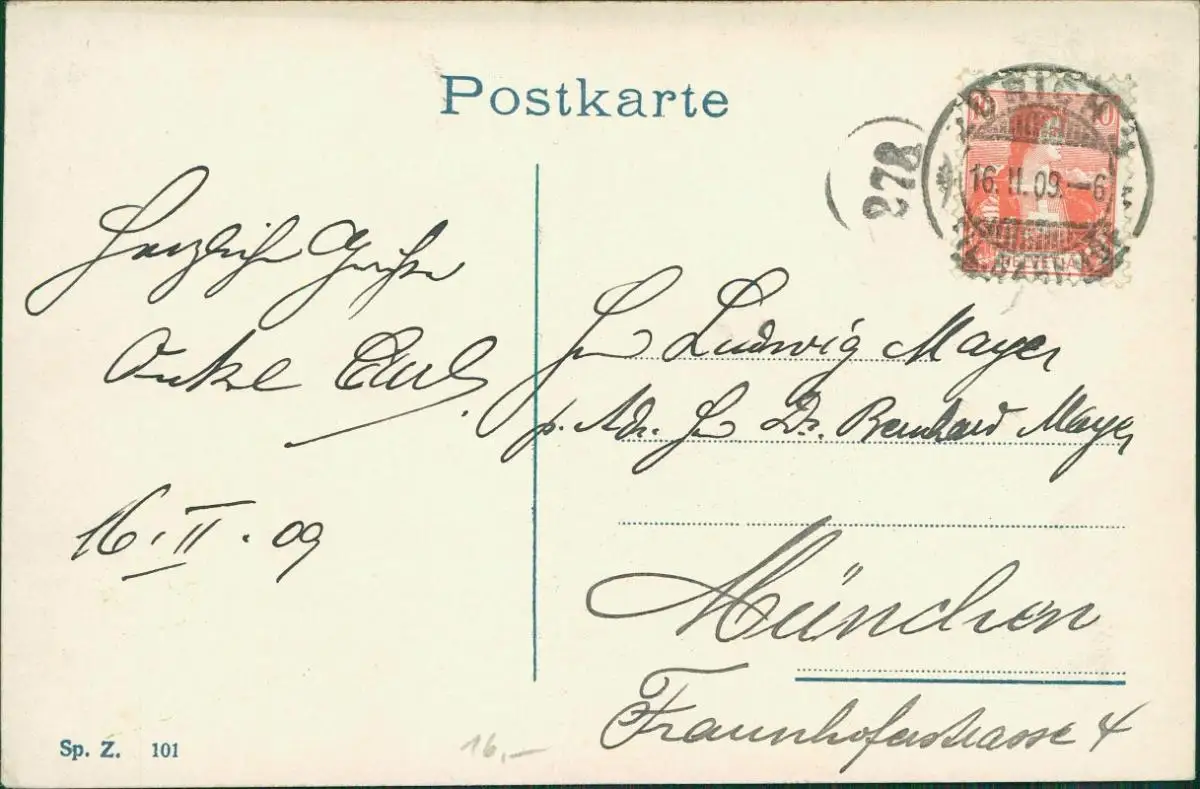 Postkarte
10 10
ZÜRICH
16. II. 09. — 6
HELVETIA
278
Herzliche Grüsse
Onkel
16. II. 09
Hn Ludwig Mayer
p. Adr. Hn Dr. Bernhard Mayer
München
Fraunhoferstrasse 4
Sp. Z. 101
16,—